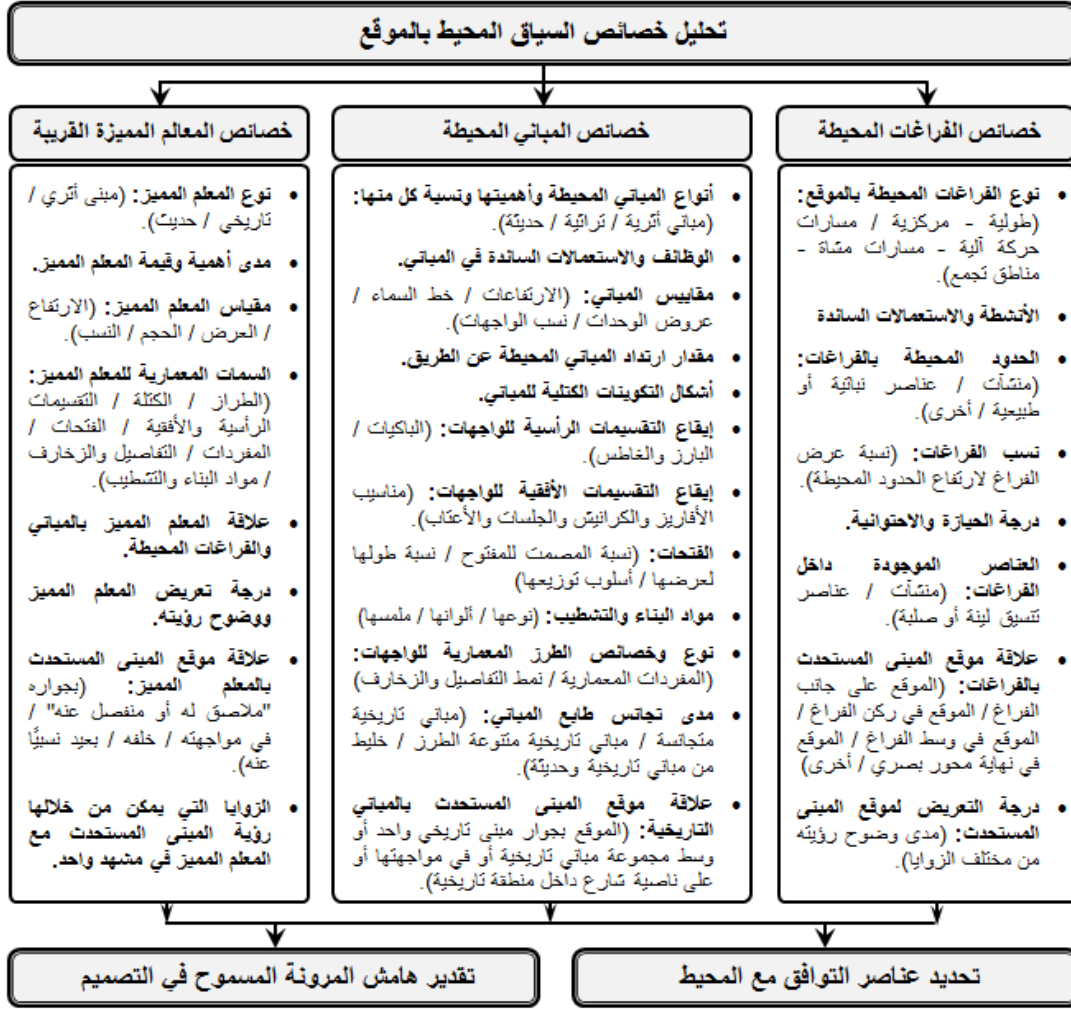 تحليل خصائص السياق المحيط بالموقع
خصائص الفراغات المحيطة
• نوع الفراغات المحيطة بالموقع:
(طولية - مركزية / مسارات
حركة آلية - مسارات مشاة -
مناطق تجمع).
• الأنشطة والاستعمالات السائدة
• الحدود المحيطة بالفراغات:
(منشآت / عناصر نباتية أو
طبيعية / أخرى).
• نسب الفراغات: (نسبة عرض
الفراغ لارتفاع الحدود المحيطة).
• درجة الحيازة والاحتوائية.
• العناصر الموجودة داخل
الفراغات: (منشآت / عناصر
تنسيق لينة أو صلبة).
• علاقة موقع المبنى المستحدث
بالفراغات: (الموقع على جانب
الفراغ / الموقع في ركن الفراغ /
الموقع في وسط الفراغ / الموقع
في نهاية محور بصري / أخرى)
• درجة التعريض لموقع المبنى
المستحدث: (مدى وضوح رؤيته
من مختلف الزوايا).
خصائص المباني المحيطة
• أنواع المباني المحيطة وأهميتها ونسبة كل منها:
(مباني أثرية / تراثية / حديثة).
• الوظائف والاستعمالات السائدة في المباني.
• مقاييس المباني: (الارتفاعات / خط السماء /
عروض الوحدات / نسب الواجهات).
• مقدار ارتداد المباني المحيطة عن الطريق.
• أشكال التكوينات الكتلية للمباني.
• إيقاع التقسيمات الرأسية للواجهات: (الباكيات /
البارز والغاطس).
• إيقاع التقسيمات الأفقية للواجهات: (مناسيب
الأفاريز والكرانيش والجلسات والأعتاب).
• الفتحات: (نسبة المصمت للمفتوح / نسبة طولها
لعرضها / أسلوب توزيعها)
• مواد البناء والتشطيب: (نوعها / ألوانها / ملمسها)
• نوع وخصائص الطرز المعمارية للواجهات:
(المفردات المعمارية / نمط التفاصيل والزخارف)
• مدى تجانس طابع المباني: (مباني تاريخية
متجانسة / مباني تاريخية متنوعة الطرز / خليط
من مباني تاريخية وحديثة).
• علاقة موقع المبنى المستحدث بالمباني
التاريخية: (الموقع بجوار مبنى تاريخي واحد أو
وسط مجموعة مباني تاريخية أو في مواجهتها أو
على ناصية شارع داخل منطقة تاريخية).
خصائص المعالم المميزة القريبة
• نوع المعلم المميز: (مبنى أثري /
تاريخي / حديث).
• مدى أهمية وقيمة المعلم المميز.
• مقياس المعلم المميز: (الارتفاع
/ العرض / الحجم / النسب).
• السمات المعمارية للمعلم المميز:
(الطراز / الكتلة / التقسيمات
الرأسية والأفقية / الفتحات /
المفردات / التفاصيل والزخارف
/ مواد البناء والتشطيب).
• علاقة المعلم المميز بالمباني
والفراغات المحيطة.
• درجة تعريض المعلم المميز
ووضوح رؤيته.
• علاقة موقع المبنى المستحدث
بالمعلم المميز: (بجواره
"ملاصق له أو منفصل عنه" /
في مواجهته / خلفه / بعيد نسبيًّا
عنه).
• الزوايا التي يمكن من خلالها
رؤية المبنى المستحدث مع
المعلم المميز في مشهد واحد.
تحديد عناصر التوافق مع المحيط
تقدير هامش المرونة المسموح في التصميم